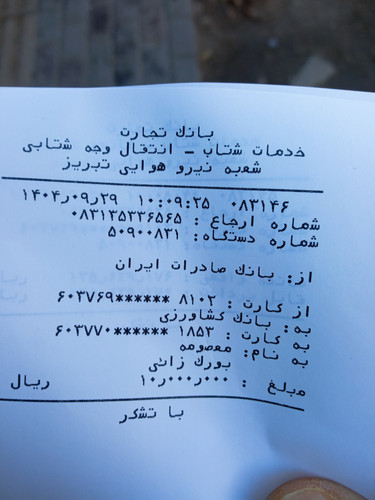 بانك تجارت
خدمات شتاب - انتقال وجه شتابی
شعبه نیرو هوایی تبریز
۱۴۰۴٫۰۹٫۲۹ ۱۰:۰۹:۲۵ ۰۸۳۱۴۶
شماره ارجاع : ۰۸۳۱۳۵۳۳۶۵۶۵
شماره دستگاه: ۵۰۹۰۰۸۳۱
از: بانك صادرات ایران
از کارت : ۸۱۰۲ ******۶۰۳۷۶۹
به: بانك کشاورزی
به کارت : ۱۸۵۳ ******۶۰۳۷۷۰
به نام: معصومه
بورك زائی
مبلغ : ۱۰٫۰۰۰٫۰۰۰ ریال
با تشکر